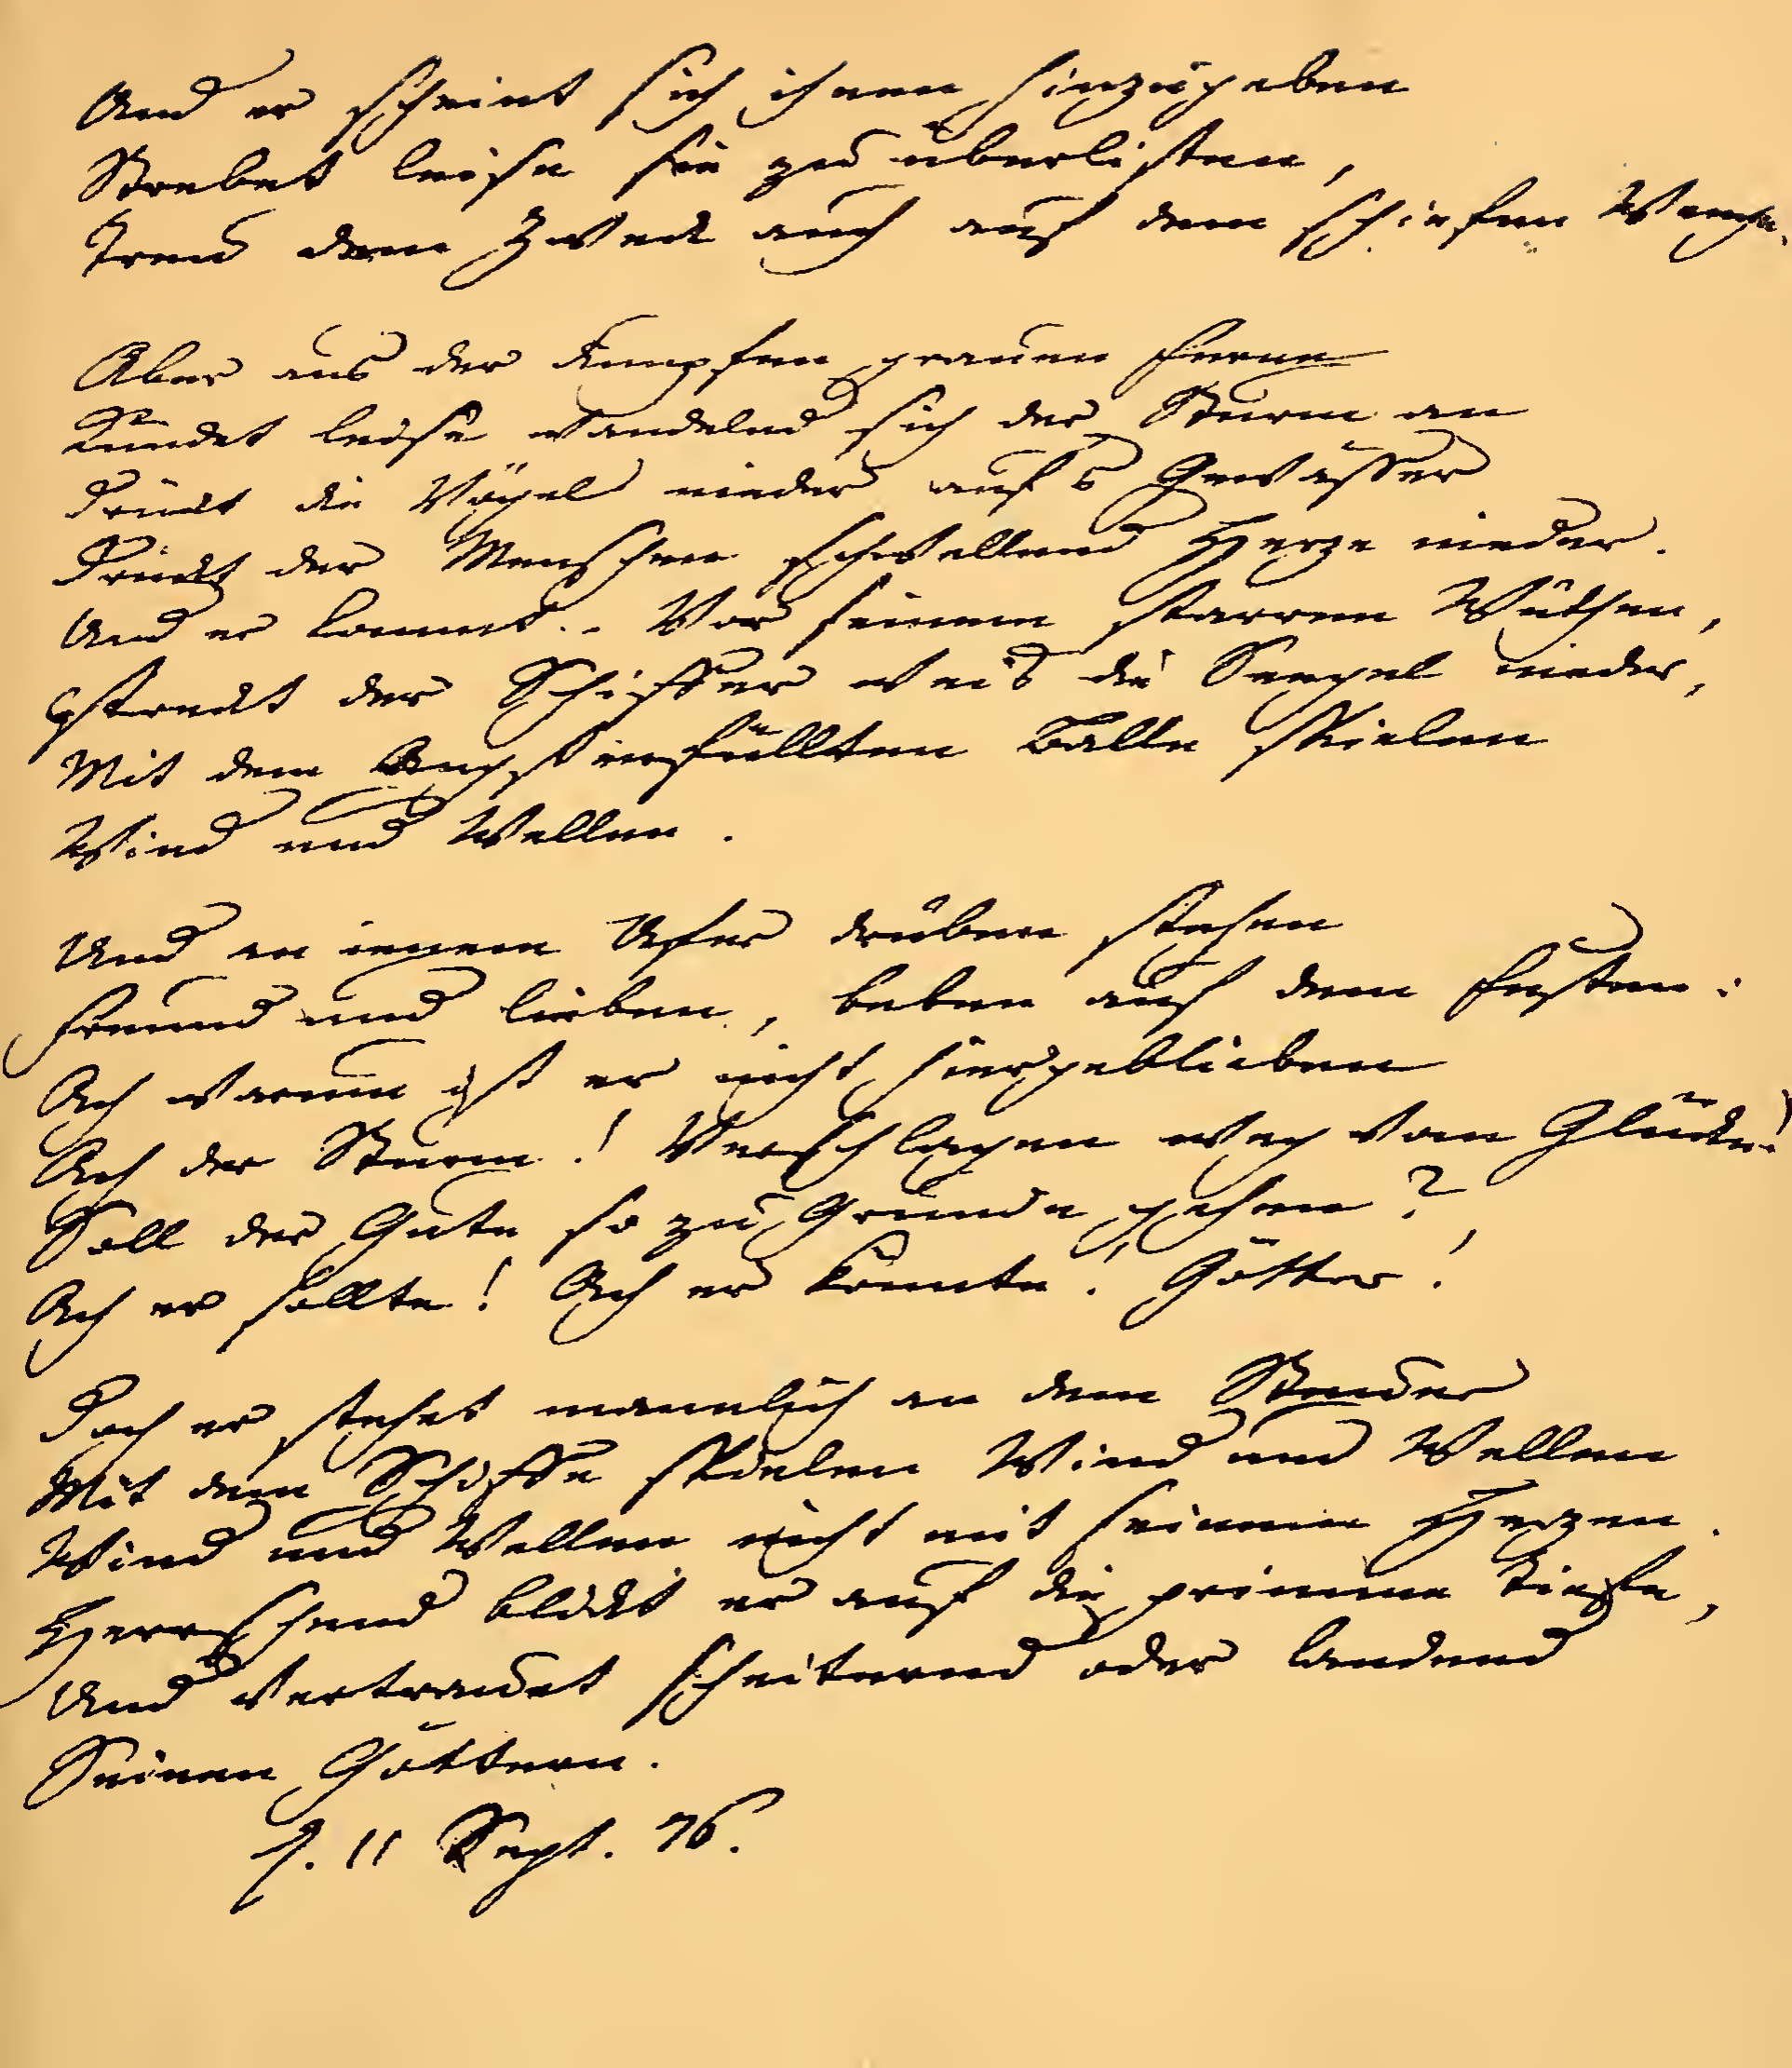 Und er scheint sich ihnen hinzugeben
Strebet leise sie zu überlisten,
Treu dem Zweck auch auf dem schiefen Wege.
Aber aus der dumpfen grauen Ferne
Kündet leise wandelnd sich der Sturm an
Drückt die Vögel nieder aufs Gewässer
Drückt der Menschen schwellend Herze nieder.
Und er kommt. Vor seinem starren Wüthen,
streckt der Schiffer weis die Seegel nieder,
Mit dem Angsterfüllten Balle spielen
Wind und Wellen.
Und an ienem Ufer drüben stehen
Freund und lieben, beben auf dem Festen:
Ach warum ist er nicht hiergeblieben
Ach der Sturm! Verschlagen weg vom Glücke!
Soll der Gute so zu Grunde gehen?
Ach er sollte! Ach er könnte! Götter!
Doch er stehet männlich an dem Steuer
Mit dem Schiffe spielen Wind und Wellen
Wind und Wellen nicht mit seinem Herzen.
Herrschend blickt er auf die grimme Tiefe,
Und vertrauet scheiternd oder landend
Seinen Göttern.
11 Sept. 76.